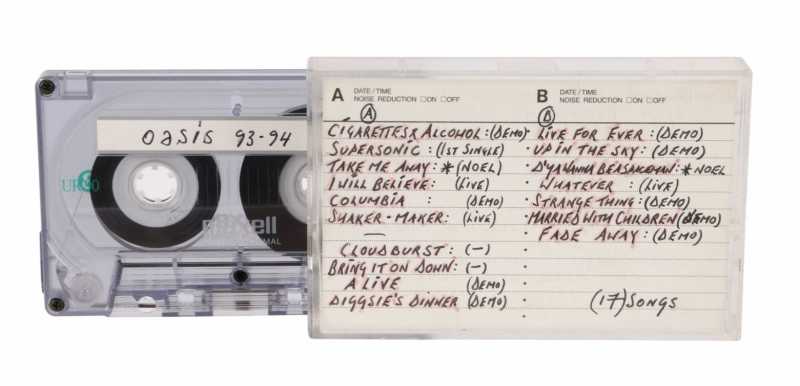 OASIS 93-94
UR 90
maxell
NORMAL
A DATE/TIME
NOISE REDUCTION □ON □OFF
A
CIGARETTES & ALCOHOL: (DEMO)
SUPERSONIC: (1ST SINGLE)
TAKE ME AWAY: * (NOEL)
I WILL BELIEVE: (LIVE)
COLUMBIA : (DEMO)
SHAKER-MAKER: (LIVE)
—
CLOUDBURST: (—)
BRING IT ON DOWN: (—)
ALIVE (DEMO)
DIGGSIE'S DINNER (DEMO)
B DATE/TIME
NOISE REDUCTION □ON □OFF
LIVE FOR EVER: (DEMO)
UP IN THE SKY: (DEMO)
: * NOEL
WHATEVER : (LIVE)
STRANGE THING: (DEMO)
MARRIED WITH CHILDREN (DEMO)
FADE AWAY: (DEMO)
(17) SONGS